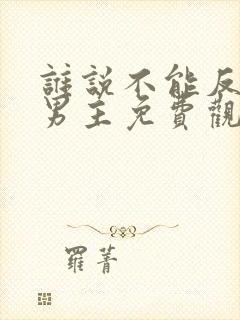 誰說不能反
男主免費觀
羅菁